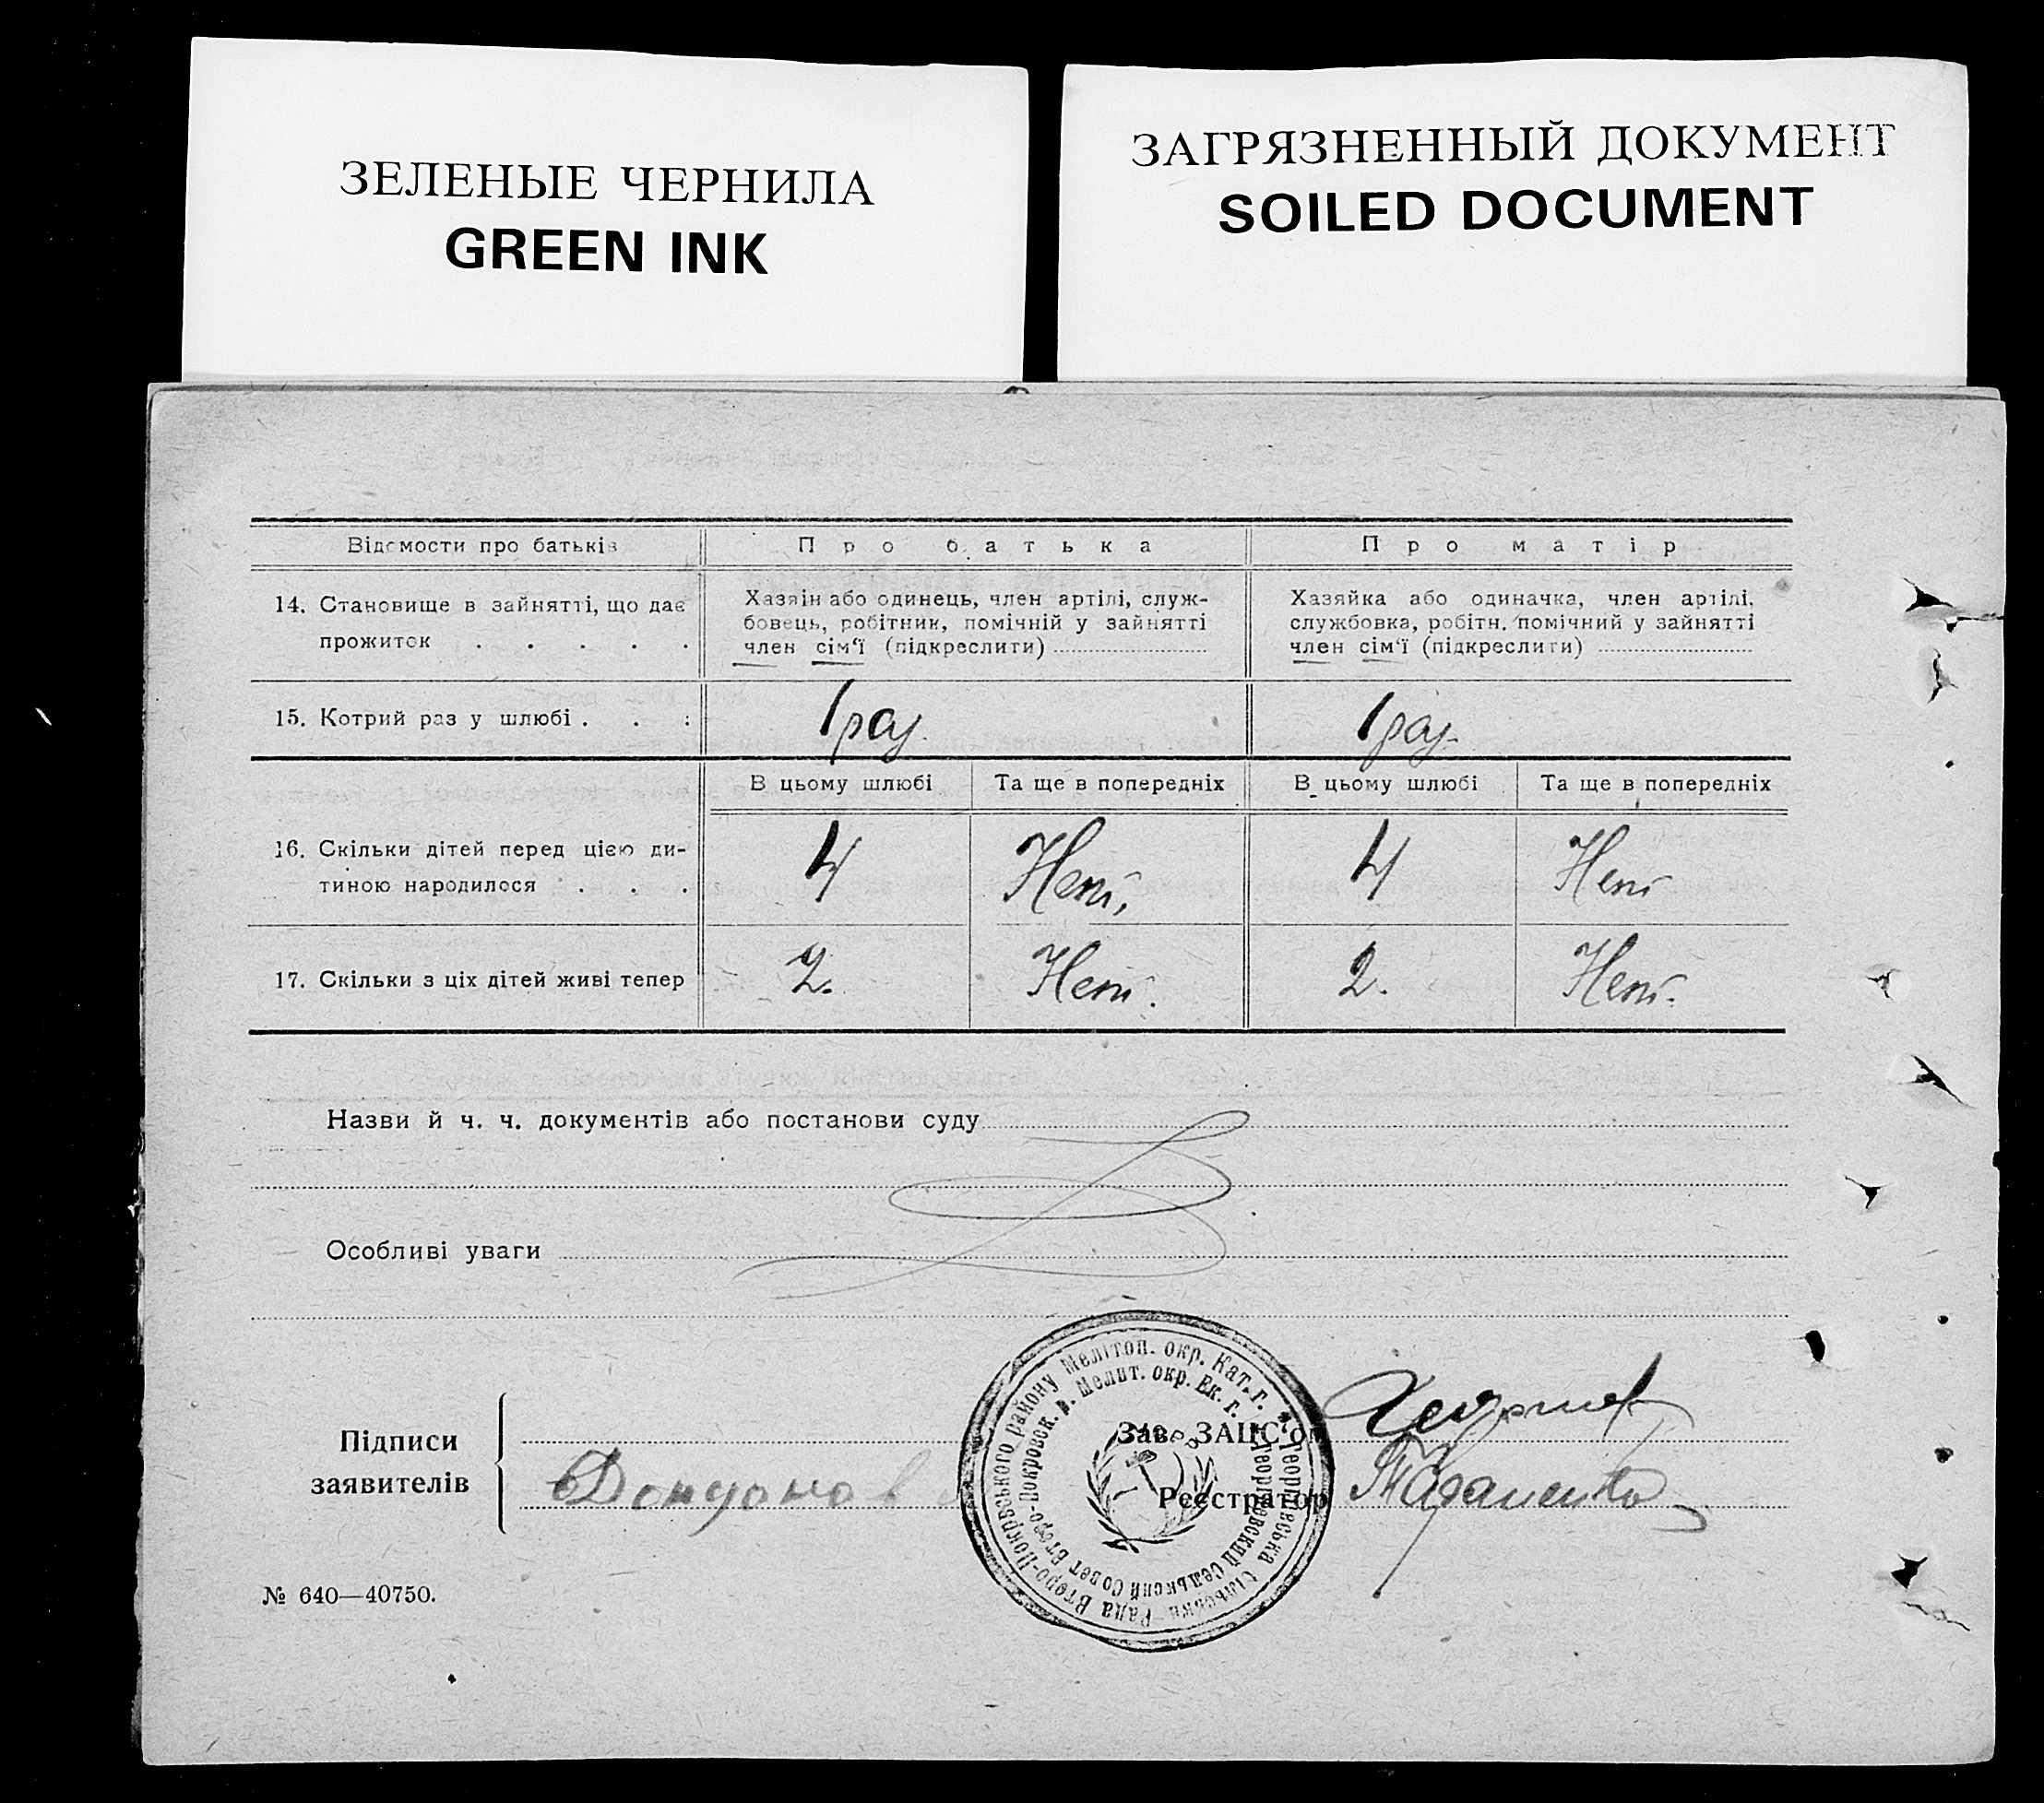 ЗЕЛЕНЫЕ ЧЕРНИЛА
GREEN INK
ЗАГРЯЗНЕННЫЙ ДОКУМЕНТ
SOILED DOCUMENT
Відомости про батьків
Про батька
Про матір
14. Становище в зайнятті, що дає
прожиток . . . . .
Хазяін або одинець, член артілі, служ-
бовець, робітник, помічній у зайнятті
член сім‘ї (підкреслити)
Хазяйка або одиначка, член артілі,
службовка, робітн. помічний у зайнятті
член сім‘ї (підкреслити)
15. Котрий раз у шлюбі . . :
1 раз.
1 раз.
В цьому шлюбі
Та ще в попередніх
В цьому шлюбі
Та ще в попередніх
16. Скільки дітей перед цією ди-
тиною народилося . . .
4
Нет,
4
Нет
17. Скільки з ціх дітей живі тепер
2.
Нет.
2.
Нет.
Назви й ч. ч. документів або постанови суду
Особливі уваги
Підписи
заявителів
Зав. ЗАЦС‘ом
Реєстратор
Втеро-Покрвського району Мелітоп. окр. Кат. г. * Георгієвська Сільська Рада
Втеро-Покровск. р. Мелит. окр. Ек. г. * Георгиевский Сельский Совет
№ 640—40750.